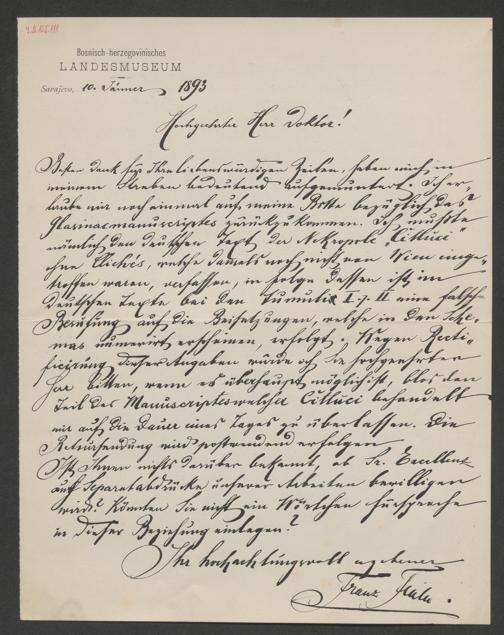 Bosnisch-herzegovinisches
LANDESMUSEUM
Sarajevo, 10. Jänner 1893
Hochgeehrter Herr Doktor!
Besten Dank für Ihre liebenswürdigen Zeilen, haben mich in
meinem Streben bedeutend aufgemuntert. Ich er-
laube mir noch einmal auf meine Bitte bezüglich des
Glasinacmanuscriptes zurückzukommen. Ich musste
nämlich den deutschen Text der Nekropole „Citluci"
ohne Clichés, welche damals noch nicht von Wien einge-
troffen waren, verfassen, in folge dessen ist im
deutschen Texte bei den Tumulis I. II eine falsche
Berufung auf die Beisetzungen, welche in den Sche-
mas numerirt erscheinen, erfolgt. Wegen Recti-
ficierung dieser Angaben würde ich hochgeehrter
Herr bitten, wenn es überhaupt möglich ist, blos den
Teil des Manuscriptes welcher Citluci behandelt
mir auf die Dauer eines Tages zu überlassen. Die
Retoursendung wird postwendend erfolgen.
Ist Ihnen nichts darüber bekannt, ob Se. Excellenz
auf Separatabdrücke unserer Arbeiten bewilligen
wird? Könnten Sie nicht ein Wörtchen fürsprache
in dieser Beziehung einlegen?
Ihr hochachtungsvoll ergebener
Franz Fiala.